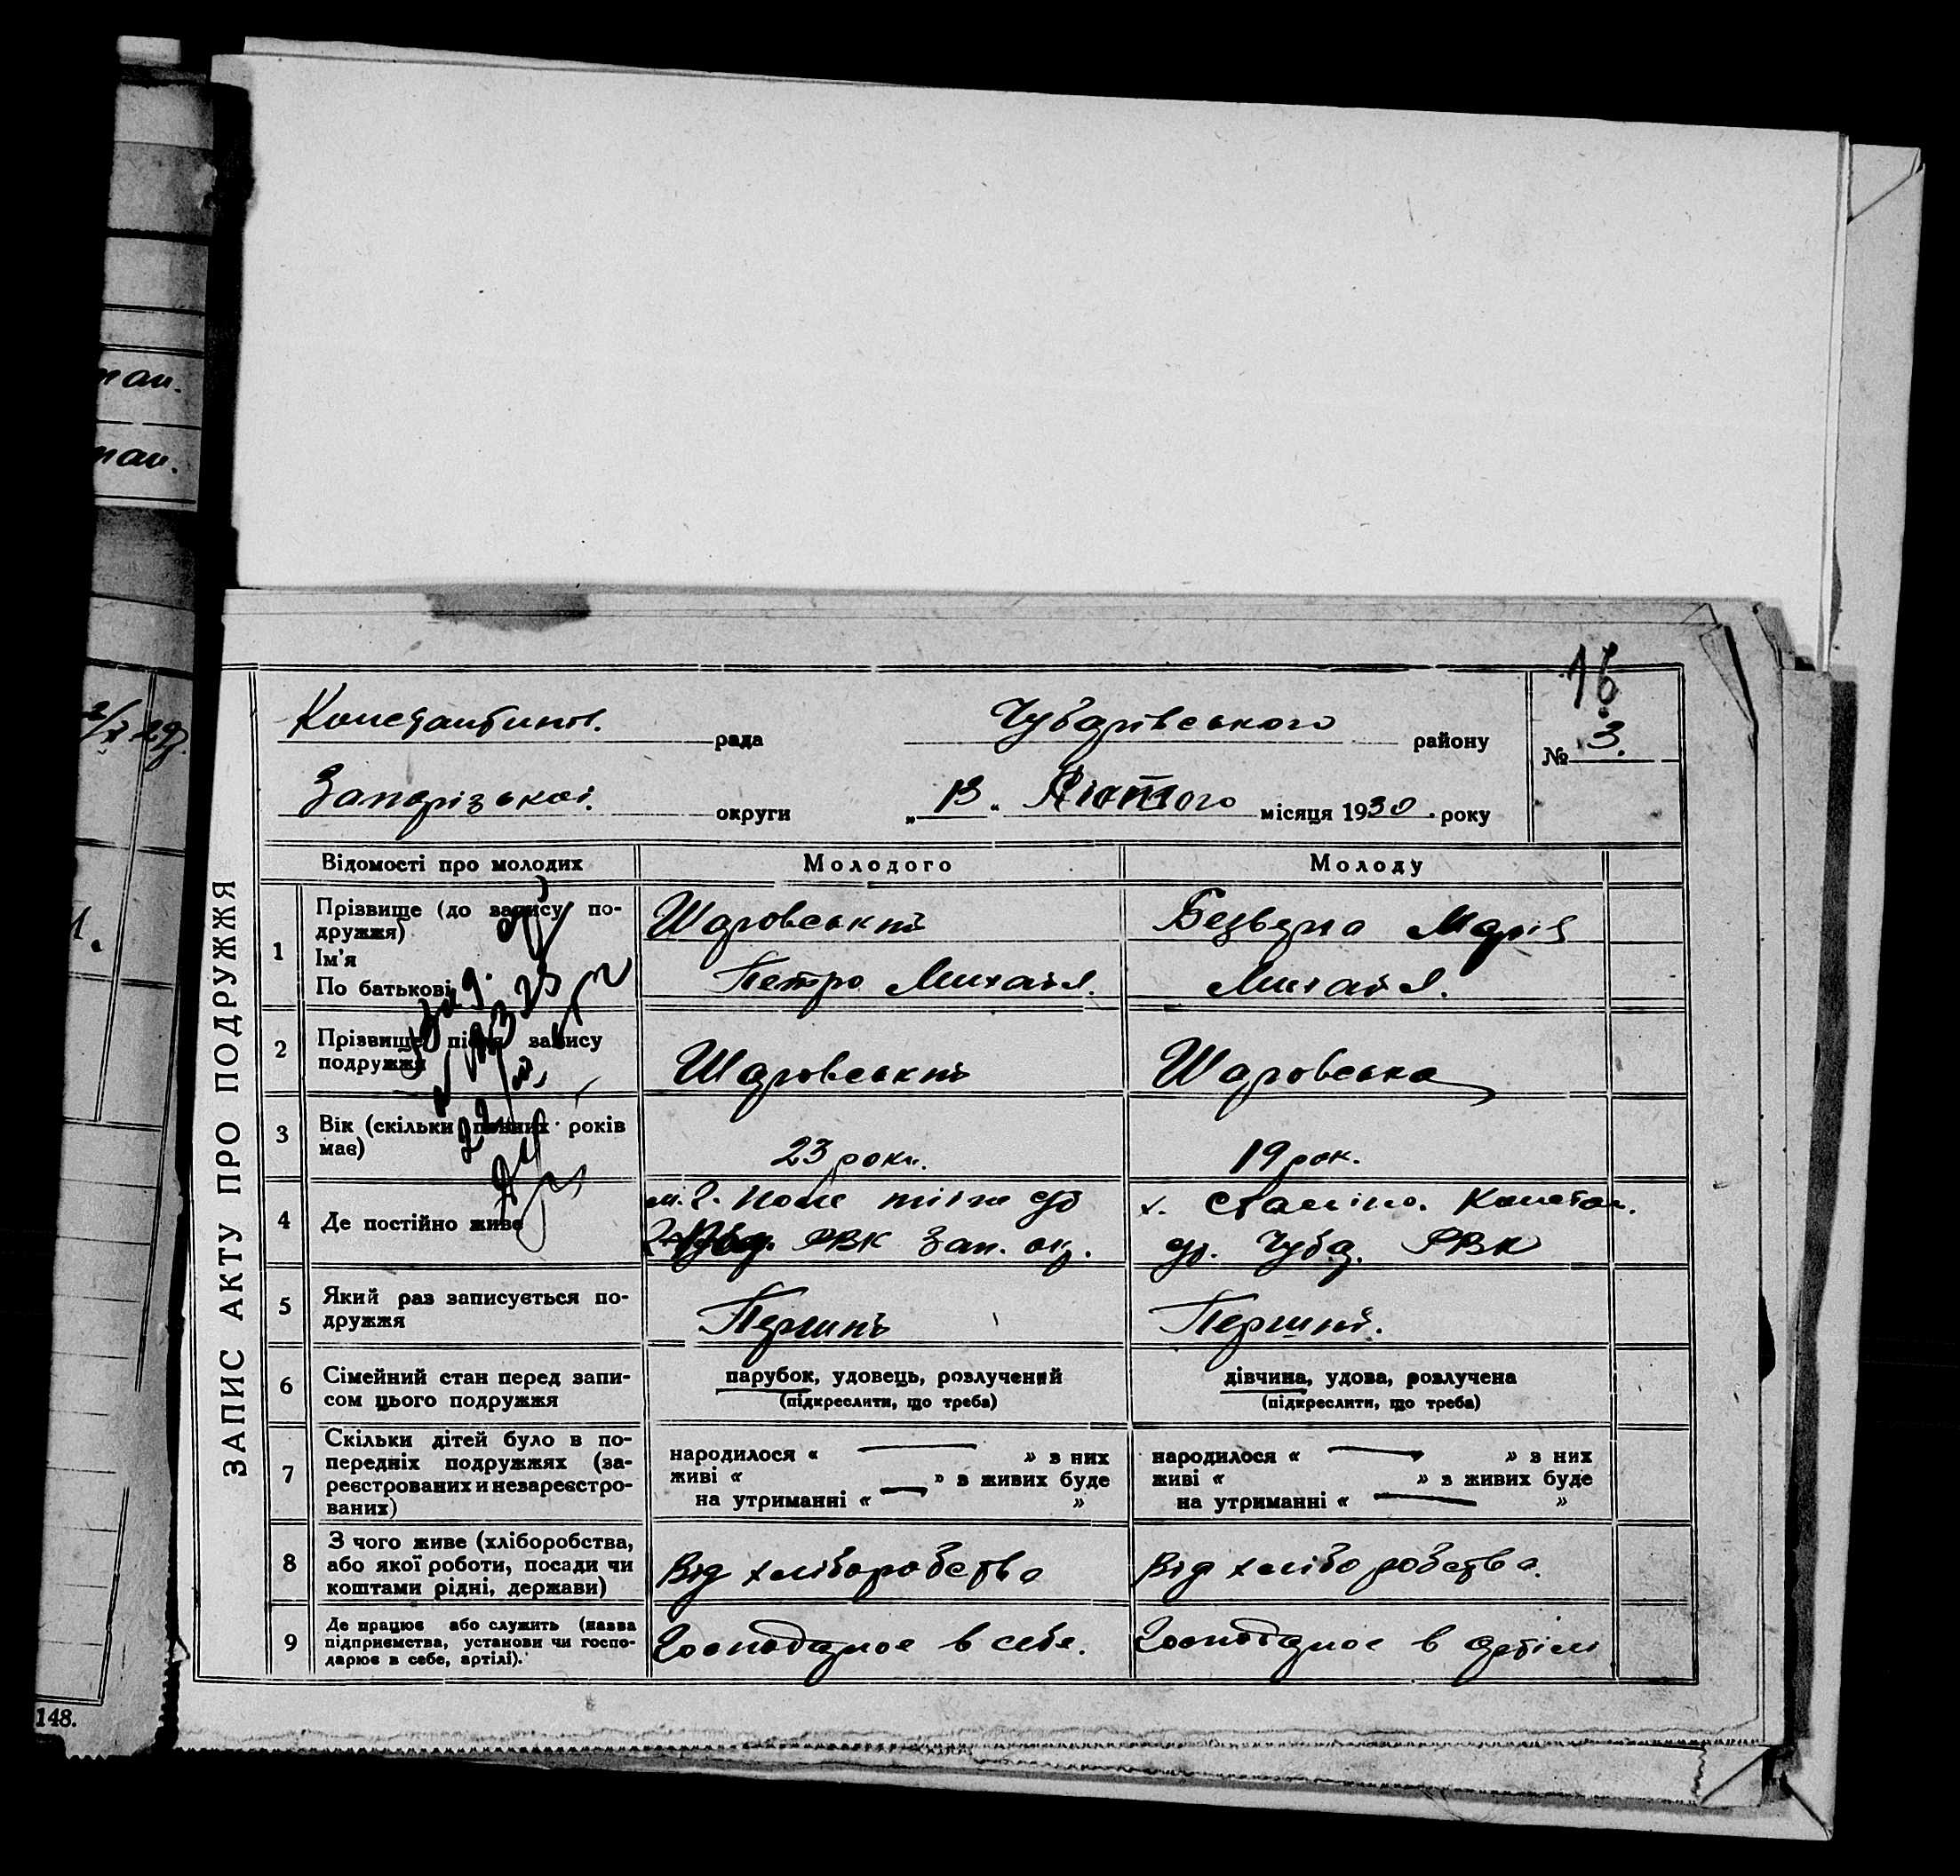 16
Константинов. рада Чубарівського району № 3.
Запорізької. округи „13„ Лютого місяця 1930. року
ЗАПИС АКТУ ПРО ПОДРУЖЖЯ
Відомості про молодих Молодого Молоду
1 Прізвище (до запису по-
дружжя)
Ім'я
По батькові
Шаровський
Петро Михайл.
Безверха Марія
Михайл.
2 Прізвище після запису
подружжя
Шаровський Шаровська
3 Вік (скільки повних років
має)
23 роки. 19 рок.
4 Де постійно живе
РВК Зап. окр.
х. Констан.
Чуба. РВК
5 Який раз записується по-
дружжя
Перший Перший.
6 Сімейний стан перед запи-
сом цього подружжя
парубок, удовець, розлучений
(підкреслити, що треба)
дівчина, удова, розлучена
(підкреслити, що треба)
7 Скільки дітей було в по-
передніх подружжях (за-
реєстрованих и незареєстро-
ваних)
народилося « » з них
живі « » з живих буде
на утриманні « »
народилося « » з них
живі « » з живих буде
на утриманні « »
8 З чого живе (хліборобства,
або якої роботи, посади чи
коштами рідні, держави)
Від хліборобства Від хліборобства.
9 Де працює або служить (назва
підприємства, установи чи госпо-
дарює в себе, артілі).
Господарює в себе. Господарює в артілі
148.